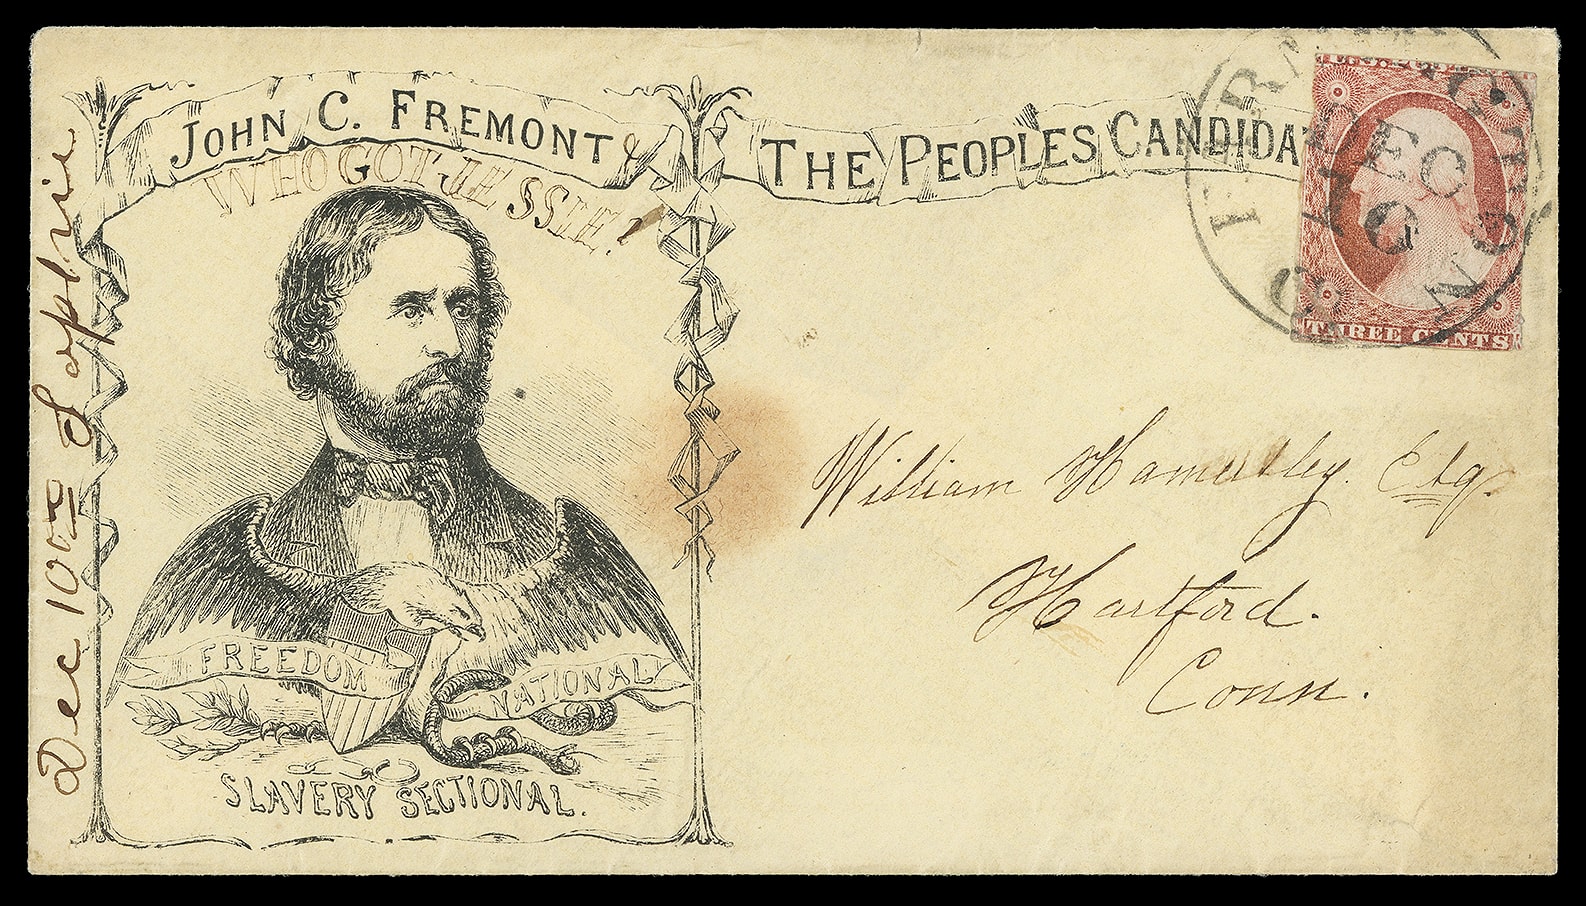 JOHN C. FREMONT
THE PEOPLES CANDIDA
WHO GOT JESSIE!
FREEDOM
NATIONAL
SLAVERY SECTIONAL.
Dec 10th Sophie
DEC
THREE CENTS
William Hamersley. Esq.
Hartford.
Conn.